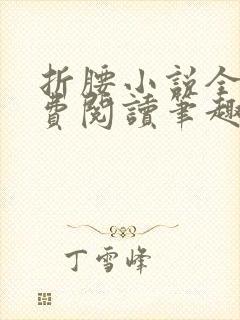 折腰小说全
費閱讀筆趣
丁雪峰